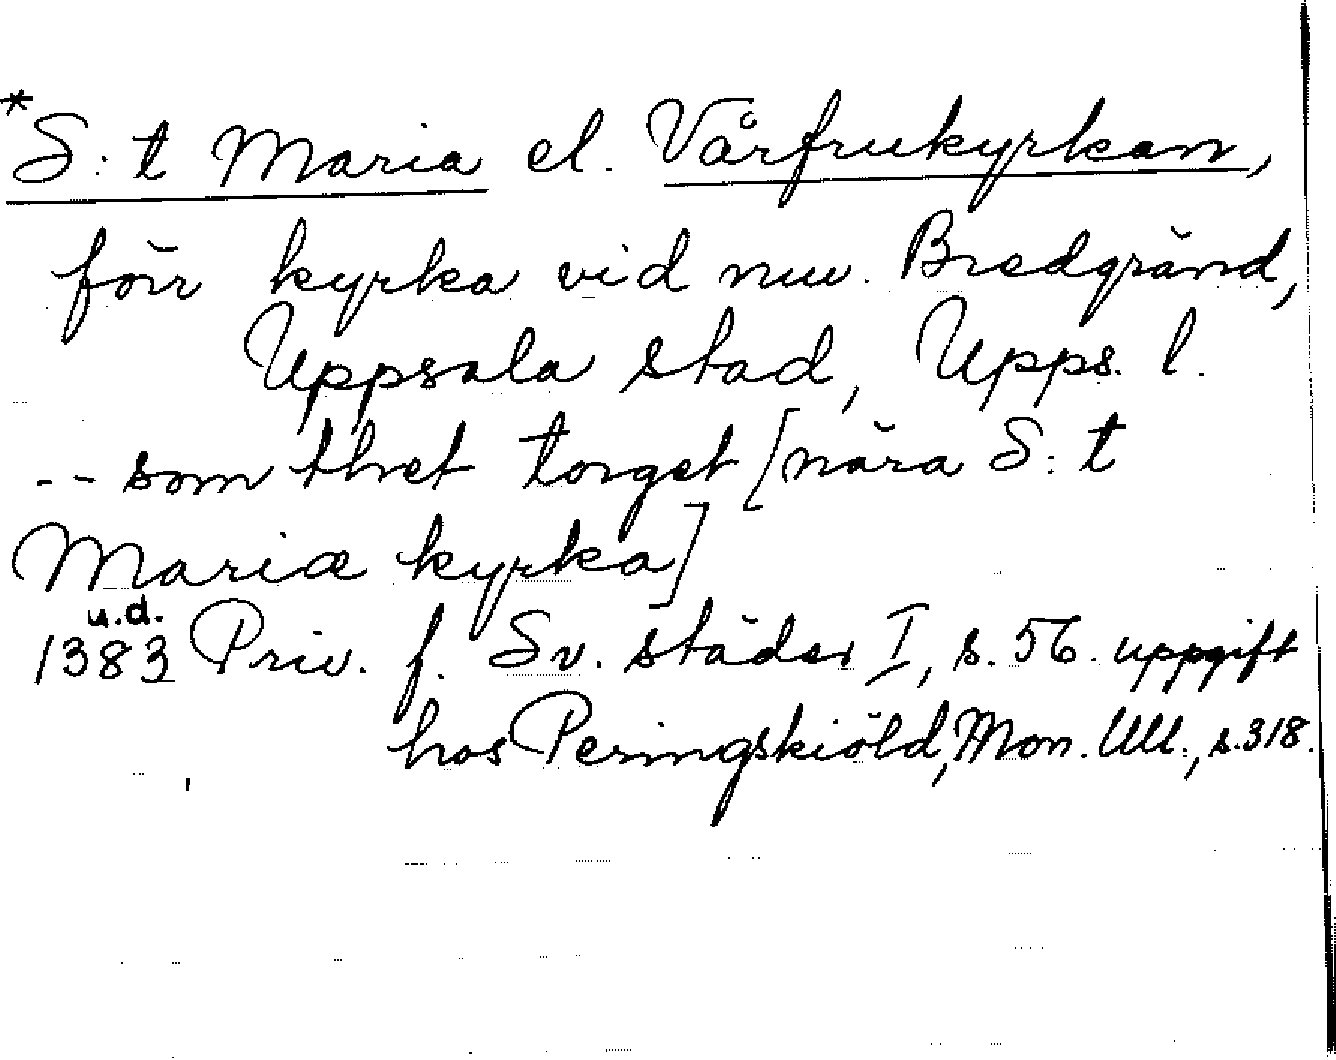 *S:t Maria el. Vårfrukyrkan,
förr kyrka vid nuv. Bredgränd,
Uppsala stad, Upps. l.
-- som thet torget [nära S:t
Mariæ kyrka]
u.d.
1383 Priv. f. Sv. städer I, s. 56. uppgift
hos Peringskiöld, Mon. Ull., s. 318.